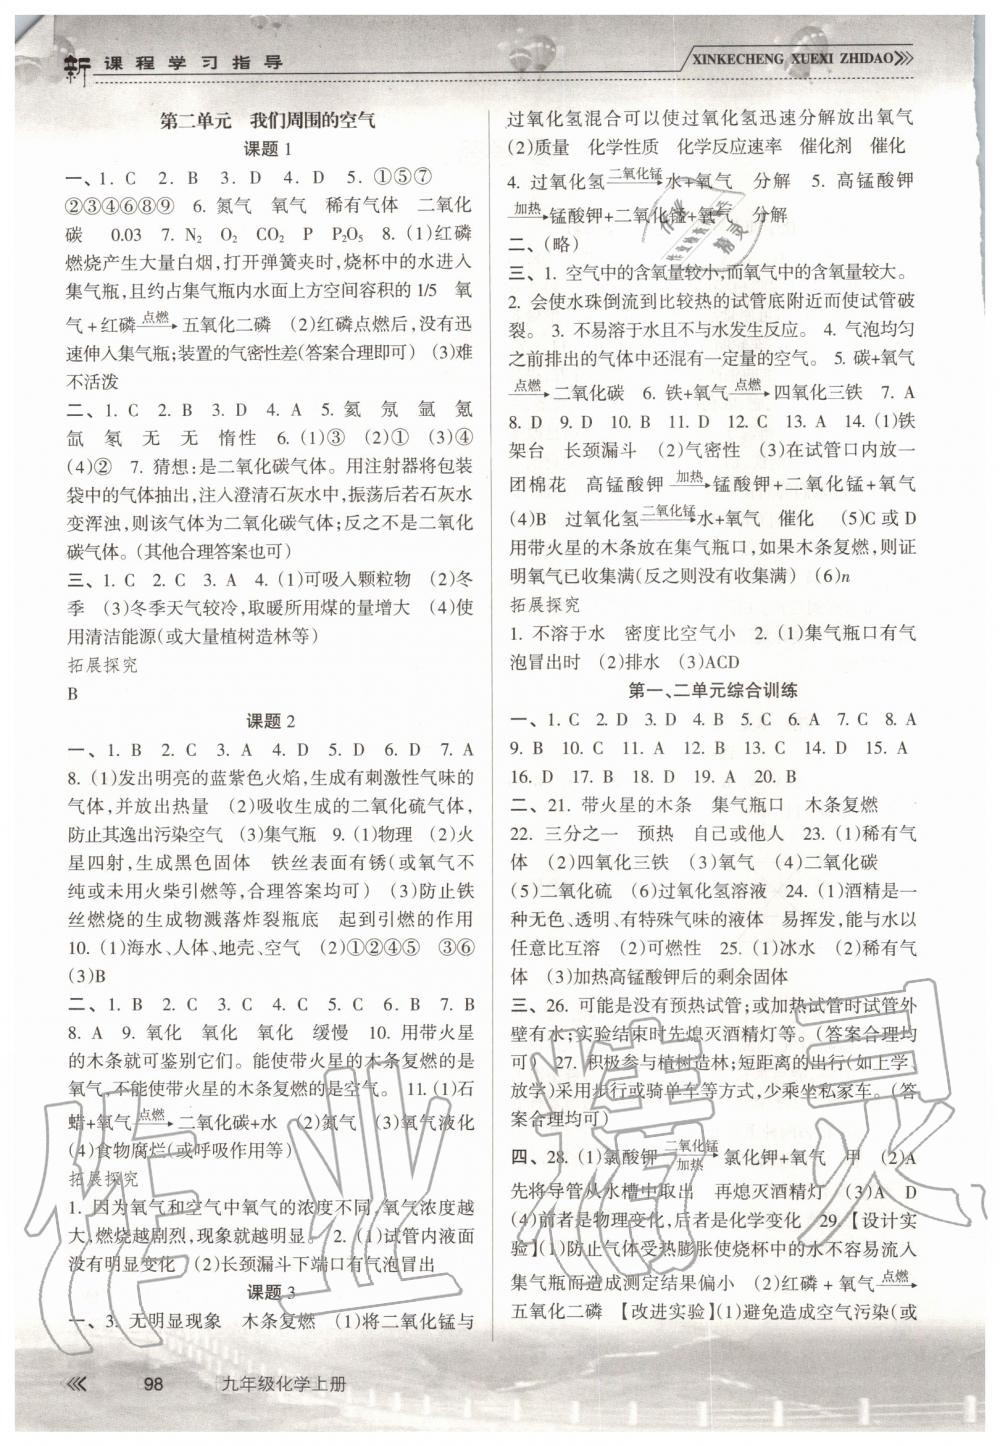 新课程学习指导
XINKECHENG XUEXI ZHIDAO
第二单元 我们周围的空气
课题 1
一、1. C 2. B 3. D 4. D 5. ①⑤⑦
②③④⑥⑧⑨ 6. 氮气 氧气 稀有气体 二氧化
碳 0.03 7. N₂ O₂ CO₂ P P₂O₅ 8. (1)红磷
燃烧产生大量白烟,打开弹簧夹时,烧杯中的水进入
集气瓶,且约占集气瓶内水面上方空间容积的 1/5 氧
气+红磷 点燃→ 五氧化二磷 (2)红磷点燃后,没有迅
速伸入集气瓶;装置的气密性差(答案合理即可) (3)难
不活泼
二、1. C 2. B 3. D 4. A 5. 氦 氖 氩 氪
氙 氡 无 无 惰性 6. (1)③ (2)① (3)④
(4)② 7. 猜想:是二氧化碳气体。用注射器将包装
袋中的气体抽出,注入澄清石灰水中,振荡后若石灰水
变浑浊,则该气体为二氧化碳气体;反之不是二氧化
碳气体。(其他合理答案也可)
三、1. C 2. C 3. A 4. (1)可吸入颗粒物 (2)冬
季 (3)冬季天气较冷,取暖所用煤的量增大 (4)使
用清洁能源(或大量植树造林等)
拓展探究
B
课题 2
一、1. B 2. C 3. A 4. D 5. D 6. D 7. A
8. (1)发出明亮的蓝紫色火焰,生成有刺激性气味的
气体,并放出热量 (2)吸收生成的二氧化硫气体,
防止其逸出污染空气 (3)集气瓶 9. (1)物理 (2)火
星四射,生成黑色固体 铁丝表面有锈(或氧气不
纯或未用火柴引燃等,合理答案均可) (3)防止铁
丝燃烧的生成物溅落炸裂瓶底 起到引燃的作用
10. (1)海水、人体、地壳、空气 (2)①②④⑤ ③⑥
(3)B
二、1. B 2. C 3. C 4. D 5. C 6. B 7. B
8. A 9. 氧化 氧化 氧化 缓慢 10. 用带火星
的木条就可鉴别它们。能使带火星的木条复燃的是
氧气,不能使带火星的木条复燃的是空气。 11. (1)石
蜡+氧气 点燃→ 二氧化碳+水 (2)氮气 (3)氧气液化
(4)食物腐烂(或呼吸作用等)
拓展探究
1. 因为氧气和空气中氧气的浓度不同,氧气浓度越
大,燃烧越剧烈,现象就越明显。 2. (1)试管内液面
没有明显变化 (2)长颈漏斗下端口有气泡冒出
课题 3
一、3. 无明显现象 木条复燃 (1)将二氧化锰与
过氧化氢混合可以使过氧化氢迅速分解放出氧气
(2)质量 化学性质 化学反应速率 催化剂 催化
4. 过氧化氢 二氧化锰→ 水+氧气 分解 5. 高锰酸钾
加热→ 锰酸钾+二氧化锰+氧气 分解
二、(略)
三、1. 空气中的含氧量较小,而氧气中的含氧量较大。
2. 会使水珠倒流到比较热的试管底附近而使试管破
裂。 3. 不易溶于水且不与水发生反应。 4. 气泡均匀
之前排出的气体中还混有一定量的空气。 5. 碳+氧气
点燃→ 二氧化碳 6. 铁+氧气 点燃→ 四氧化三铁 7. A
8. D 9. D 10. B 11. D 12. C 13. A 14. (1)铁
架台 长颈漏斗 (2)气密性 (3)在试管口内放一
团棉花 高锰酸钾 加热→ 锰酸钾+二氧化锰+氧气
(4)B 过氧化氢 二氧化锰→ 水+氧气 催化 (5)C 或 D
用带火星的木条放在集气瓶口,如果木条复燃,则证
明氧气已收集满(反之则没有收集满) (6)n
拓展探究
1. 不溶于水 密度比空气小 2. (1)集气瓶口有气
泡冒出时 (2)排水 (3)ACD
第一、二单元综合训练
一、1. C 2. D 3. D 4. B 5. C 6. A 7. C 8. A
9. B 10. C 11. C 12. B 13. C 14. D 15. A
16. D 17. B 18. D 19. A 20. B
二、21. 带火星的木条 集气瓶口 木条复燃
22. 三分之一 预热 自己或他人 23. (1)稀有气
体 (2)四氧化三铁 (3)氧气 (4)二氧化碳
(5)二氧化硫 (6)过氧化氢溶液 24. (1)酒精是一
种无色、透明、有特殊气味的液体 易挥发,能与水以
任意比互溶 (2)可燃性 25. (1)冰水 (2)稀有气
体 (3)加热高锰酸钾后的剩余固体
三、26. 可能是没有预热试管;或加热试管时试管外
壁有水;实验结束时先熄灭酒精灯等。(答案合理均
可) 27. 积极参与植树造林;短距离的出行(如上学、
放学)采用步行或骑单车等方式,少乘坐私家车。(答
案合理均可)
四、28. (1)氯酸钾 二氧化锰/加热→ 氯化钾+氧气 甲 (2)A
先将导管从水槽中取出 再熄灭酒精灯 (3)A D
(4)前者是物理变化,后者是化学变化 29. 【设计实
验】(1)防止气体受热膨胀使烧杯中的水不容易流入
集气瓶而造成测定结果偏小 (2)红磷+氧气 点燃→
五氧化二磷 【改进实验】(1)避免造成空气污染(或
98 九年级化学上册
作业精灵